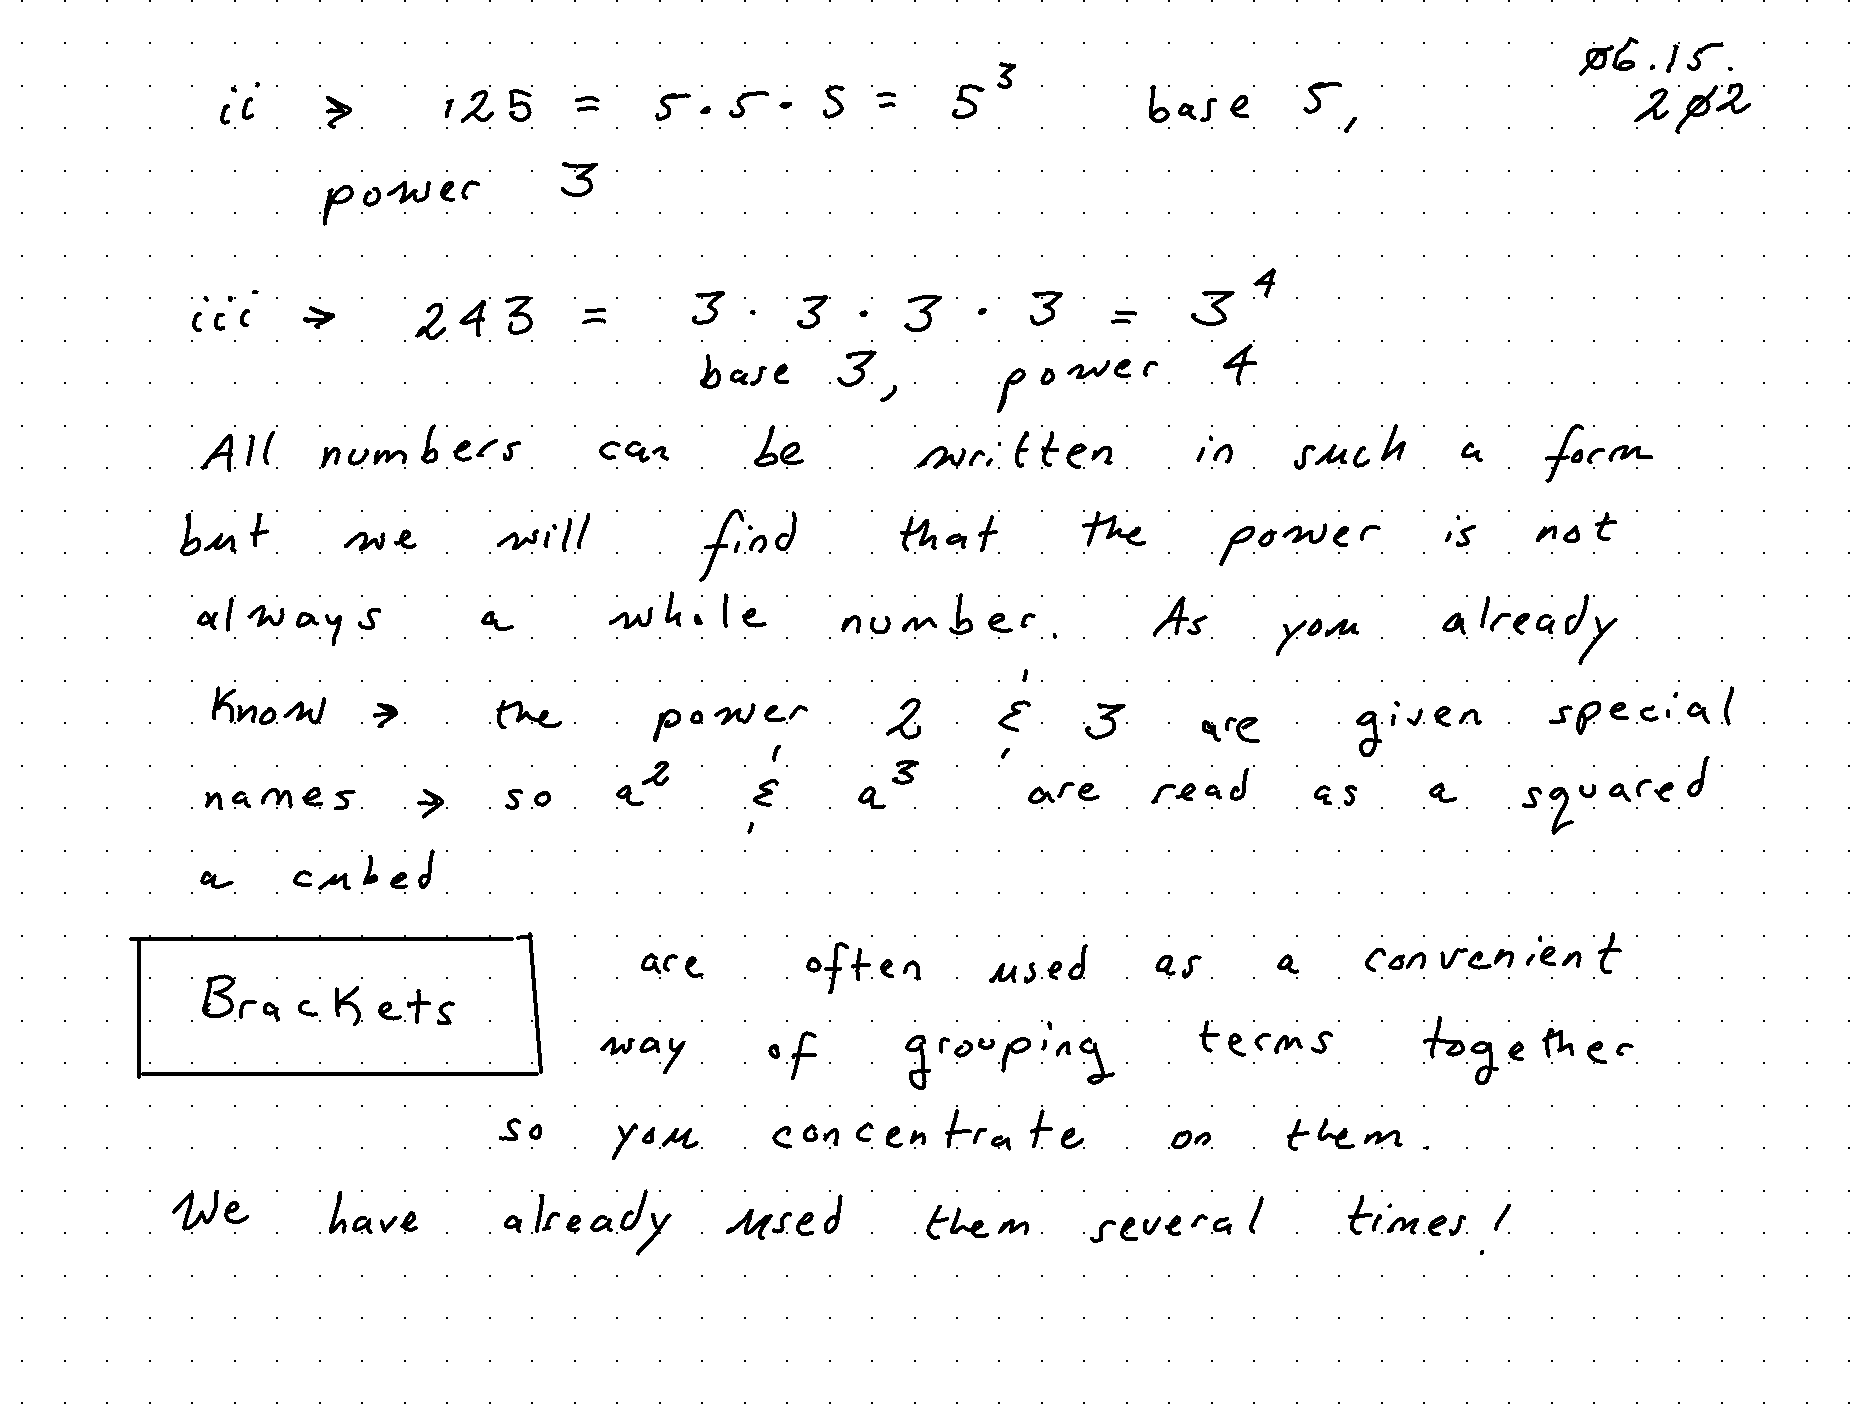 ø6.15.
2ø2
ii → 125 = 5·5·5 = 5³ base 5,
power 3
iii → 243 = 3·3·3·3 = 3⁴
base 3, power 4
All numbers can be written in such a form
but we will find that the power is not
always a whole number. As you already
know → the power 2 & 3 are given special
names → so a² & a³ are read as a squared
a cubed
Brackets are often used as a convenient
way of grouping terms together
so you concentrate on them.
We have already used them several times!